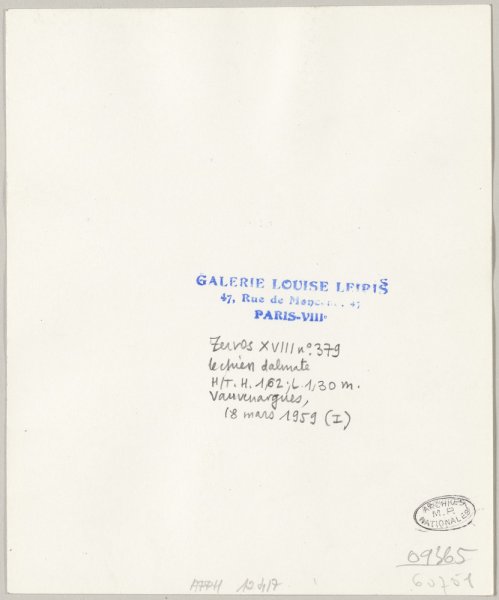 GALERIE LOUISE LEIRIS
47, Rue de 47
PARIS-VIIIe
Zervos XVIII n°.379
le chien dalmate
H/T. H. 1,62; L 1,30 m.
Vauvenargues,
18 mars 1959 (I)
ARCHIVES
M.P.
NATIONALES
09365